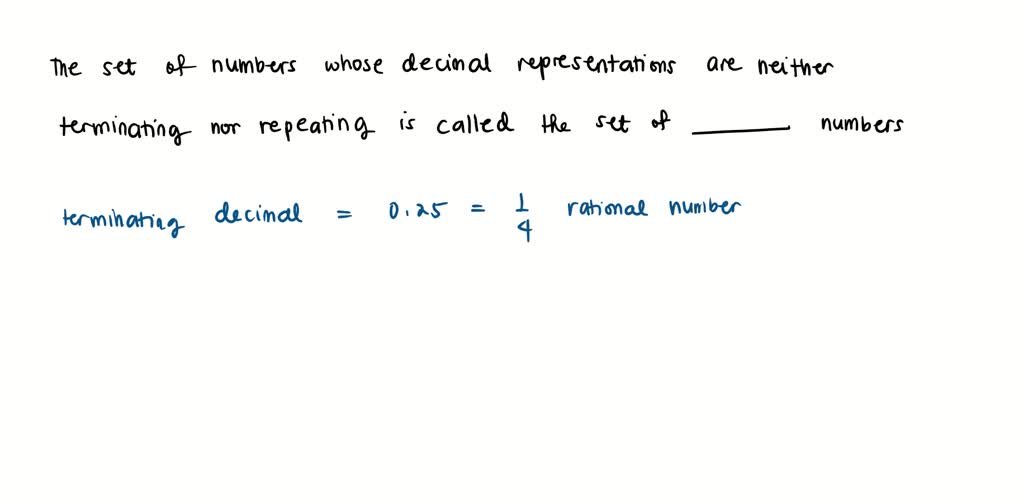 The set of numbers whose decimal representations are neither
terminating nor repeating is called the set of ______ numbers
terminating decimal = 0.25 = 1/4 rational number